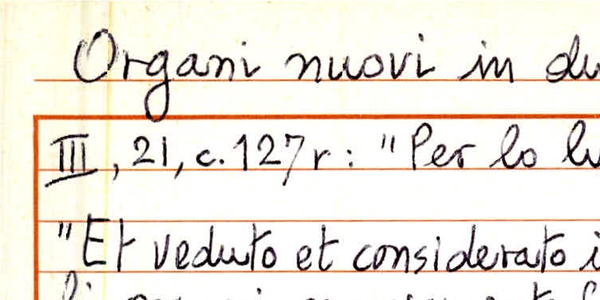 Organi nuovi in du
III, 21, c. 127r: "Per lo
"Et veduto et considerato